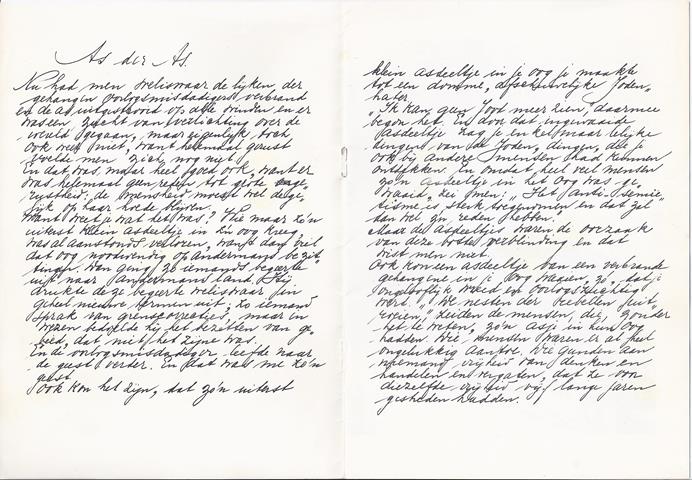 As der As.
Nu had men weliswaar de lijken, der
gehangen oorlogsmisdadigers verbrand
en de as uitgestrooid op alle winden en er
was een zucht van verlichting over de
wereld gegaan, maar eigenlijk, toch
ook weer niet, want helemaal gerust
voelde men zich nog niet.
En dat was maar heel goed ook, want er
was helemaal geen reden tot grote
rustheid: de mensheid moest wel de
op haar hoede blijven.
Want weet je wat het was? Wie maar zo'n
uiterst klein asdeeltje in z'n oog kreeg,
was al aanstonds verloren, want dan viel
dat oog noodwendig op andermans bezit-
tingen. Dan ging zo iemands begeerte
uit naar andermans land. Hij
drukte die begeerte weliswaar in
geheel nieuwe termen uit; zo iemand
sprak van grenscorrecties, maar in
wezen bedoelde hij het bezetten van ge-
bied, dat niet het zijne was.
En de oorlogsmisdadiger leefde naar
de geest verder. En dat was me zo'n
geest.
Ook kon het zijn, dat zo'n uiterst
klein asdeeltje in je oog je maakte
tot een domme, afschuwelijke Joden-
hater.
"Ik kan geen Jood meer zien, daarmee
begon het. En door dat ingewaaide
asdeeltje zag je enkel maar lelijke
dingen van de Joden, dingen, die je
ook bij andere mensen had kunnen
ontdekken. En omdat heel veel mensen
zo'n asdeeltje in het oog was ge-
waaid, zei men: "Het anti-semie-
tisme is sterk toegenomen en dat zal
dan wel z'n reden hebben."
Maar de asdeeltjes waren de oorzaak
van deze boze verblinding en dat
wist men niet.
Ook kon een asdeeltje van een verbrande
gehangene in je oog waaien, zo, dat je
ongelooflijk wreed en oorlogszuchtig
werd. "De nesten der rebellen uit-
roeien," zeiden de mensen, die, zonder
het te weten, zo'n asje in hun oog
hadden. Die mensen waren er al heel
ongelukkig aan toe. Die gunden aan
niemand vrijheid van denken en
handelen en vergaten, dat ze voor
diezelfde vrijheid vijf lange jaren
gestreden hadden.